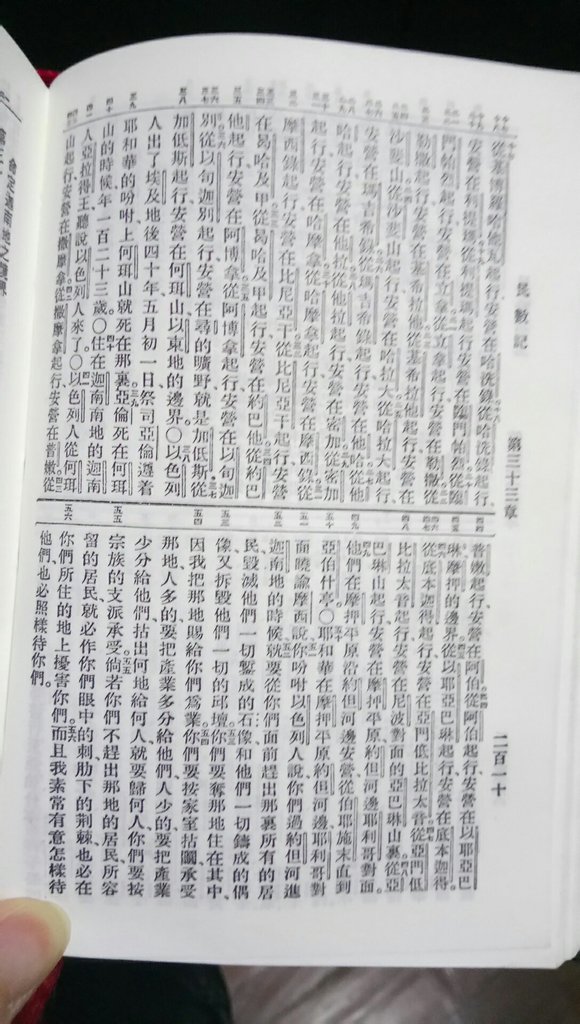 民數記 第三十三章 二百一十
從基博羅哈他瓦起行、安營在哈洗錄從哈洗錄起行、
安營在利提瑪從利提瑪起行、安營在臨門帕烈從臨
門帕烈起行、安營在立拿從立拿起行、安營在勒撒從
勒撒起行、安營在基希拉他從基希拉他起行、安營在
沙斐山從沙斐山起行、安營在哈拉大從哈拉大起行、
安營在瑪吉希錄從瑪吉希錄起行、安營在他哈從他
哈起行、安營在他拉從他拉起行、安營在密加從密加
起行、安營在哈摩拿從哈摩拿起行、安營在摩西錄從
摩西錄起行、安營在比尼亞干從比尼亞干起行、安營
在曷哈及甲從曷哈及甲起行、安營在約巴他從約巴
他起行、安營在阿博拿從阿博拿起行、安營在以旬迦
別從以旬迦別起行、安營在尋的曠野就是加低斯從
加低斯起行、安營在何珥山以東地的邊界。○以色列
人出了埃及地後四十年五月初一日祭司亞倫遵着
耶和華的吩咐上何珥山就死在那裏亞倫死在何珥
山的時候年一百二十三歲○住在迦南南地的迦南
人亞拉得王聽說以色列人來了。○以色列人從何珥
山起行、安營在撒摩拿從撒摩拿起行、安營在普嫩從
普嫩起行、安營在阿伯從阿伯起行、安營在以耶亞巴
琳摩押的邊界從以耶亞巴琳起行、安營在底本迦得
從底本迦得起行、安營在亞門低比拉太音從亞門低
比拉太音起行、安營在尼波對面的亞巴琳山裏從亞
巴琳山起行、安營在摩押平原約但河邊耶利哥對面。
他們在摩押平原沿約但河邊安營從伯耶施末直到
亞伯什亭。○耶和華在摩押平原約但河邊耶利哥對
面曉諭摩西說你吩咐以色列人說你們過約但河進
迦南地的時候就要從你們面前趕出那裏所有的居
民毀滅他們一切鏨成的石像和他們一切鑄成的偶
像又拆毀他們一切的邱壇你們要奪那地住在其中、
因我把那地賜給你們爲業你們要按家室拈鬮承受
那地人多的要把產業多分給他們人少的要把產業
少分給他們拈出何地給何人就要歸何人你們要按
宗族的支派承受倘若你們不趕出那地的居民所容
留的居民就必作你們眼中的刺肋下的荊棘也必在
你們所住的地上擾害你們。而且我素常有意怎樣待
他們、也必照樣待你們。